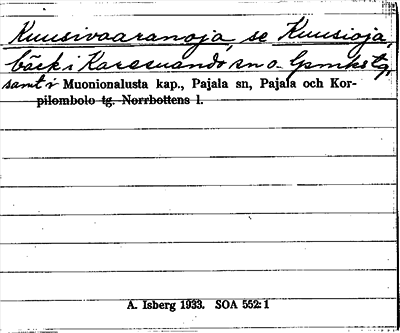 Kuusivaaranoja, se Kuusioja,
bäck i Karesuando sn o. lpmks tg,
samt i Muonionalusta kap., Pajala sn, Pajala och Kor-
pilombolo tg. Norrbottens l.
A. Isberg 1933. SOA 552: 1